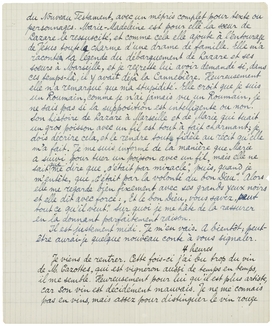 du Nouveau Testament, avec un mépris complet pour toute ou
personnages. Marie-Madeleine est pour elle la sœur de
Lazare le ressuscité, et comme cela elle ajoute à l'entourage
de Jésus toute le charme d'une drame de famille. Elle m'a
raconté la légende du débarquement de Lazare et ses
sœurs à Marseille, et je regrette lui avoir demandé si, dans
ces temps là, il y avait déjà la Cannebière. Heureusement
elle n'a remarqué que ma stupidité. Elle croit que je suis
un Roumain, comme je n'ai jamais vu un Roumain, je
ne sais pas si la supposition est intelligente ou non.
son histoire de Lazare à Marseille et de Marie qui tuait
un gros poisson avec un fil est tout à fait charmant, je
dois décrire cela, et rendre trois fidèle au récit qu'elle
m'a fait. Je me suis informé de la manière que Marie
a suivi pour tuer un poisson avec un fil, mais elle ne
sait me dire que "c'était par miracle", ou, quand je
m'obstine, que "c'était par la volonté du bon Dieu". Alors
elle me regarde bien fixement avec ses grands yeux noirs
et elle dit avec force: "Et le bon Dieu, vous savez, peut
tout ce qu'il veut", sur quoi je me hâte de la rassurer
en lui donnant parfaitement raison.
Il est justement midi. Je m'en vais. A bientôt, peut-
être aurai-je quelque nouveau conte à vous signaler.
4 heures
Je viens de rentrer. Cette fois-ci j'ai bu trop du vin
de M. Cazottes, qui est vigneron aussi de temps en temps,
il me semble. Heureusement pour lui qu'il est plus artiste
car son vin est décidément mauvais. Je ne me connais
pas en vins, mais assez pour distinguer le vin rouge